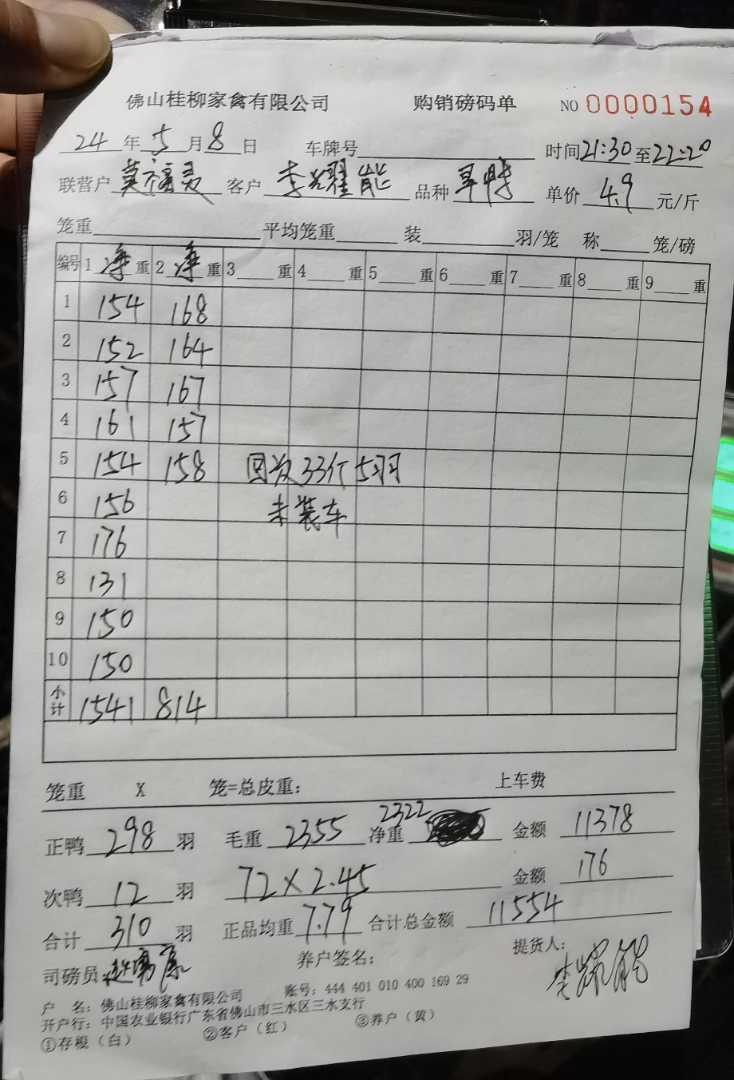 佛山桂柳家禽有限公司 购销磅码单 NO 0000154
24 年 5 月 8 日 车牌号 时间 21:30 至 22:20
联营户 莫福灵 客户 李耀能 品种 单价 4.9 元/斤
笼重 平均笼重 装 羽/笼 称 笼/磅
编号 1 净 重 2 净 重 3 重 4 重 5 重 6 重 7 重 8 重 9 重
1 154 168
2 152 164
3 157 167
4 161 157
5 154 158 回次33斤5羽
6 156 未装车
7 176
8 131
9 150
10 150
小计 1541 814
笼重 X 笼=总皮重: 上车费
正鸭 298 羽 毛重 2355 净重 2322 金额 11378
次鸭 12 羽 72×2.45 金额 176
合计 310 羽 正品均重 7.79 合计总金额 11554
司磅员 养户签名: 提货人: 李耀能
户 名: 佛山桂柳家禽有限公司 账号: 444 401 010 400 169 29
开户行: 中国农业银行广东省佛山市三水区三水支行
①存根(白) ②客户(红) ③养户(黄)